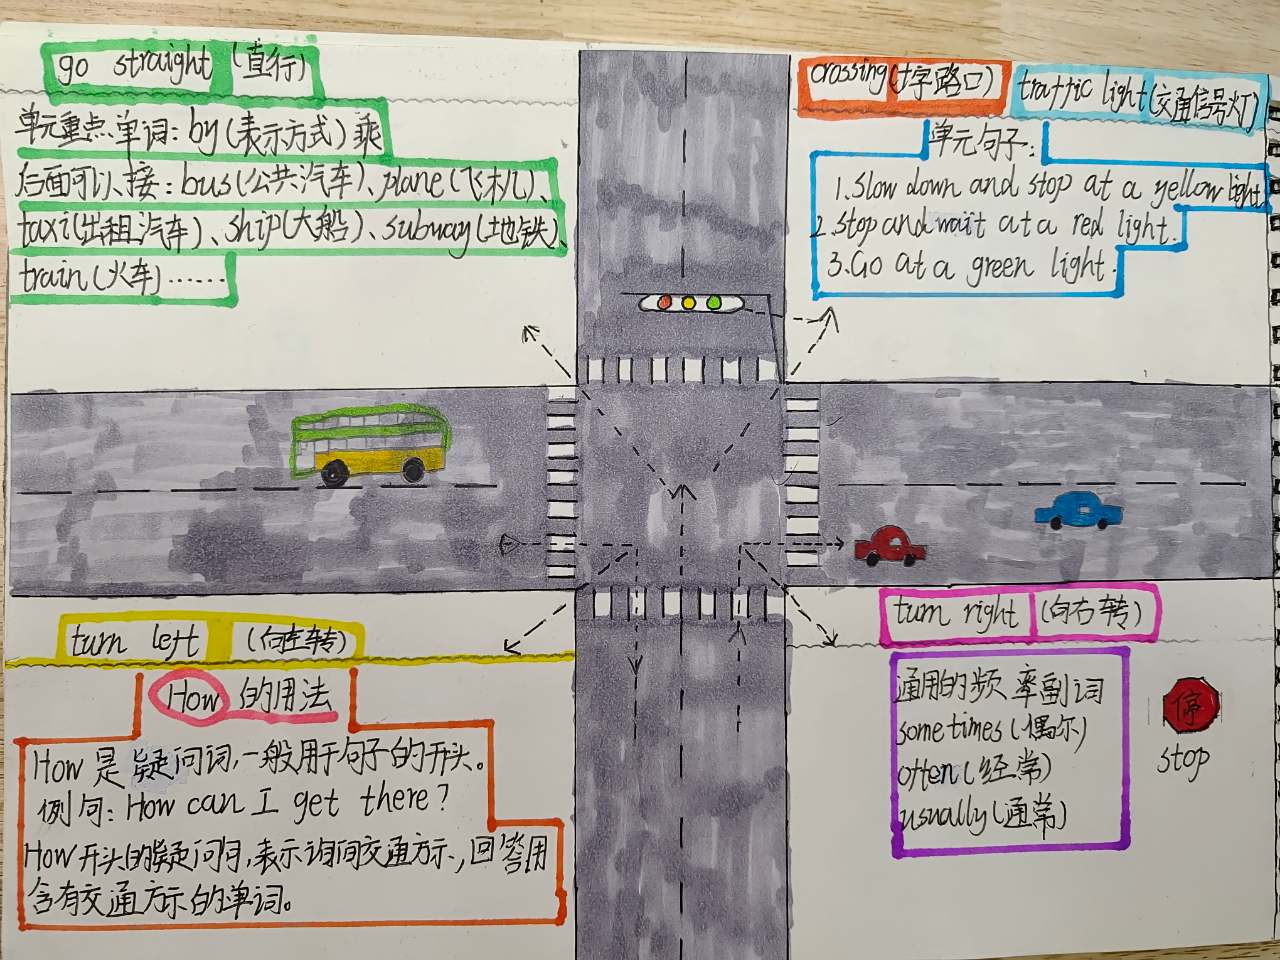 go straight (直行)
单元重点单词: by(表示方式)乘
后面可以接: bus(公共汽车)、plane(飞机)、
taxi(出租汽车)、ship(大船)、subway(地铁)、
train(火车)……
crossing(十字路口) traffic light(交通信号灯)
单元句子:
1. Slow down and stop at a yellow light.
2. Stop and wait at a red light.
3. Go at a green light.
turn left (向左转)
How 的用法
How 是疑问词,一般用于句子的开头。
例句: How can I get there?
How开头的疑问句,表示询问交通方式,回答用
含有交通方式的单词。
turn right (向右转)
通用的频率副词
sometimes(偶尔)
often(经常)
usually(通常)
停
stop